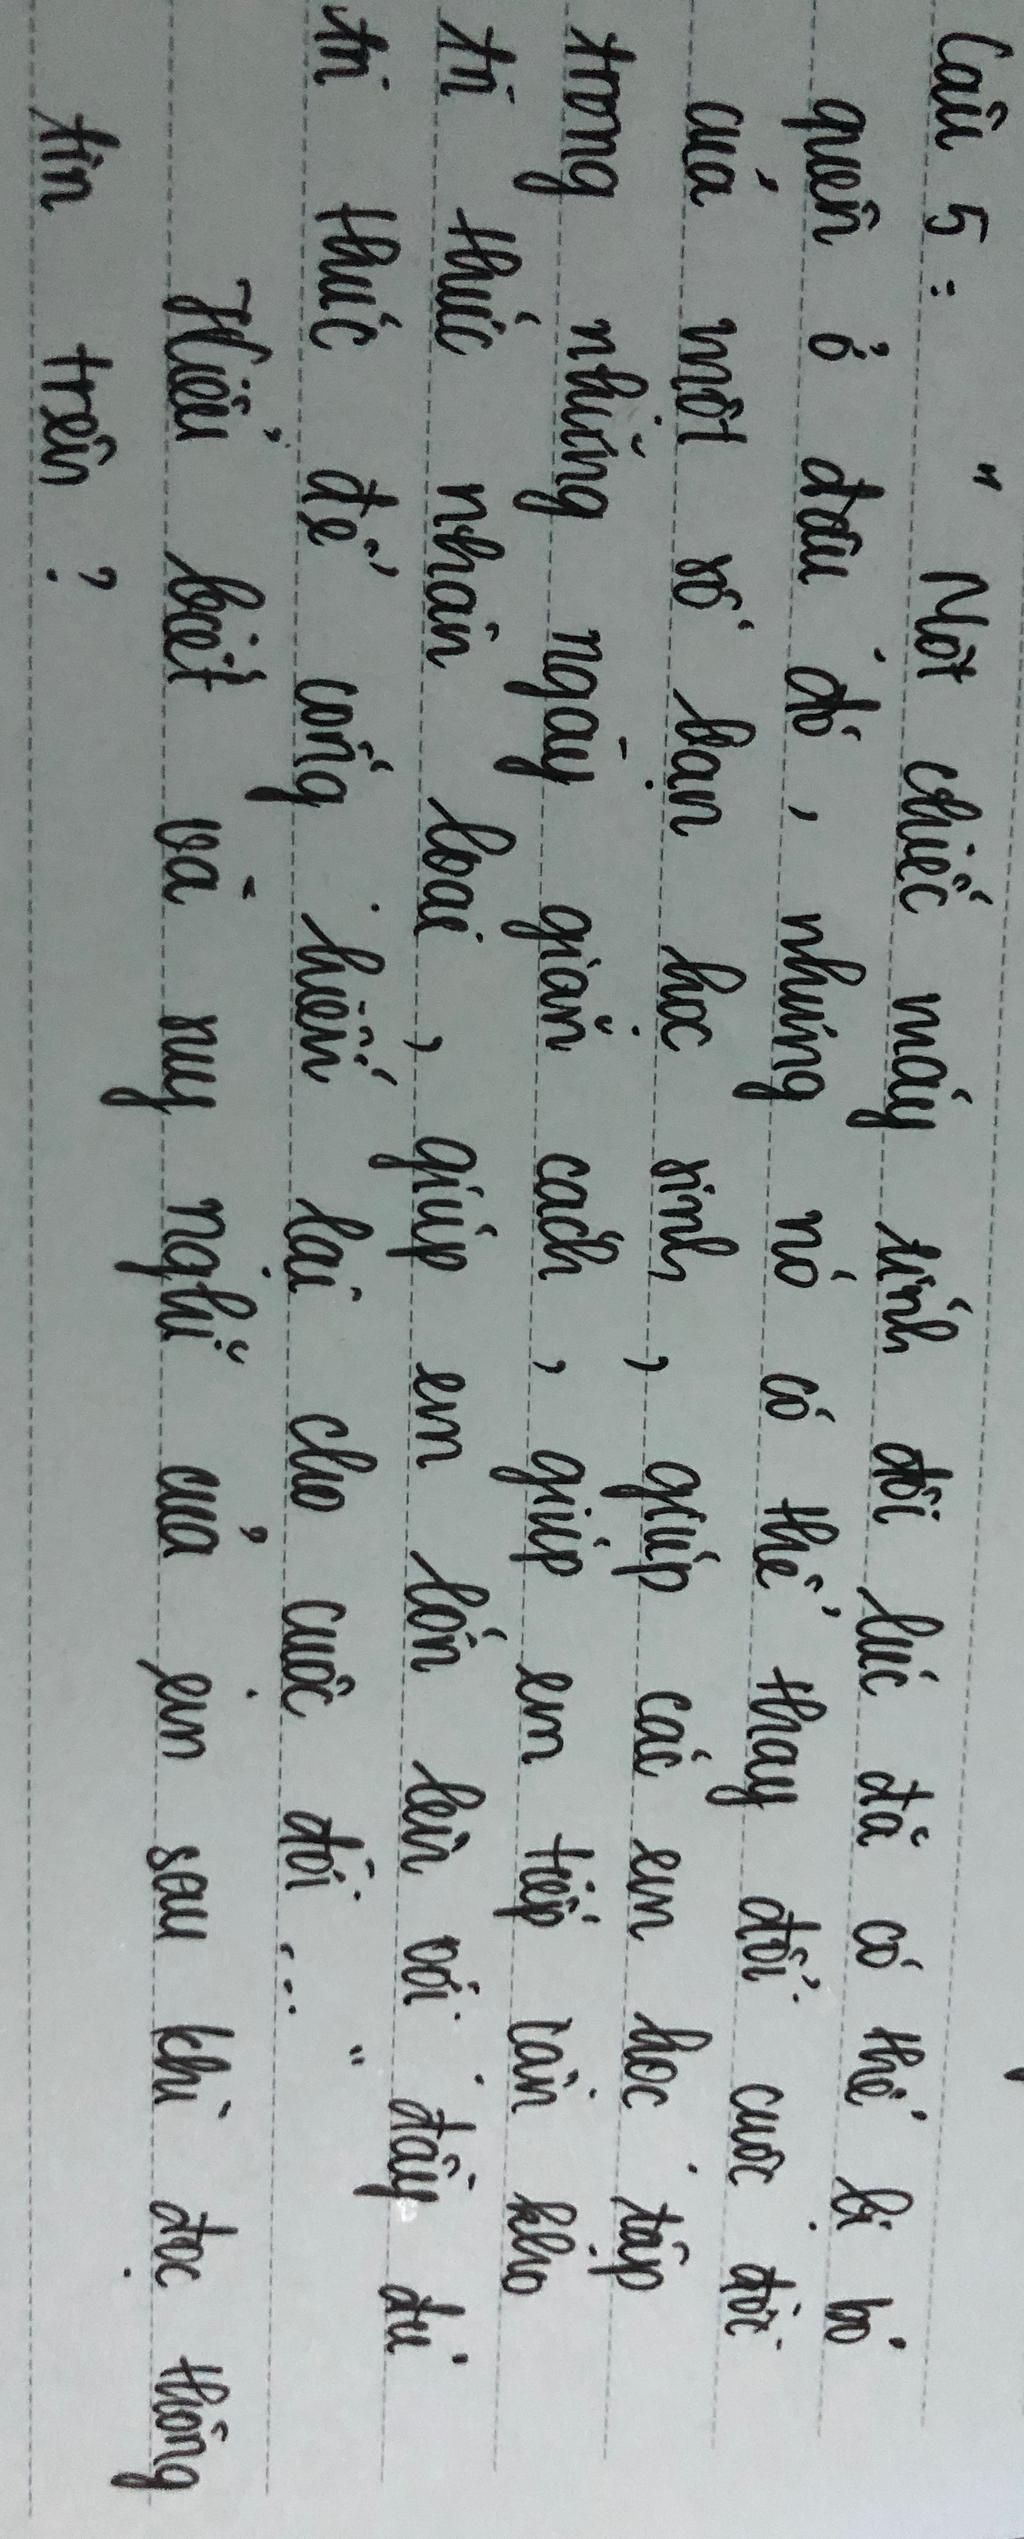 Câu 5 : " Một chiếc máy tính đôi lúc đã có thể bị bỏ
quên ở đâu đó , nhưng nó có thể thay đổi cuộc đời
của một số bạn học sinh , giúp các em học tập
trong những ngày giãn cách , giúp em tiếp cận kho
tri thức nhân loại , giúp em lớn lên với đầy đủ
tri thức để cống hiến lại cho cuộc đời ... "
Hiểu biết và suy nghĩ của em sau khi đọc thông
tin trên ?